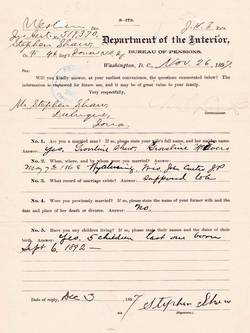 3-173.
Department of the Interior,
BUREAU OF PENSIONS,
Washington, D. C., Nov. 26, 1897
Stephen Shaw
Will you kindly answer, at your earliest convenience, the questions enumerated below? The
information is requested for future use, and it may be of great value to your family.
Very respectfully,
Mr. Stephen Shaw
Iowa
No. 1. Are you a married man? If so, please state your wife's full name, and her maiden name.
Answer: Yes,
No. 2. When, where, and by whom were you married? Answer:
May 7th 1868 John J.P.
No. 3. What record of marriage exists? Answer: supposed to be
No. 4. Were you previously married? If so, please state the name of your former wife and the
date and place of her death or divorce. Answer: No.
No. 5. Have you any children living? If so, please state their names and the dates of their
birth. Answer: Yes. 5 children last one born
Sept 6, 1892 —
Date of reply, Dec 3, 1897
Stephen Shaw